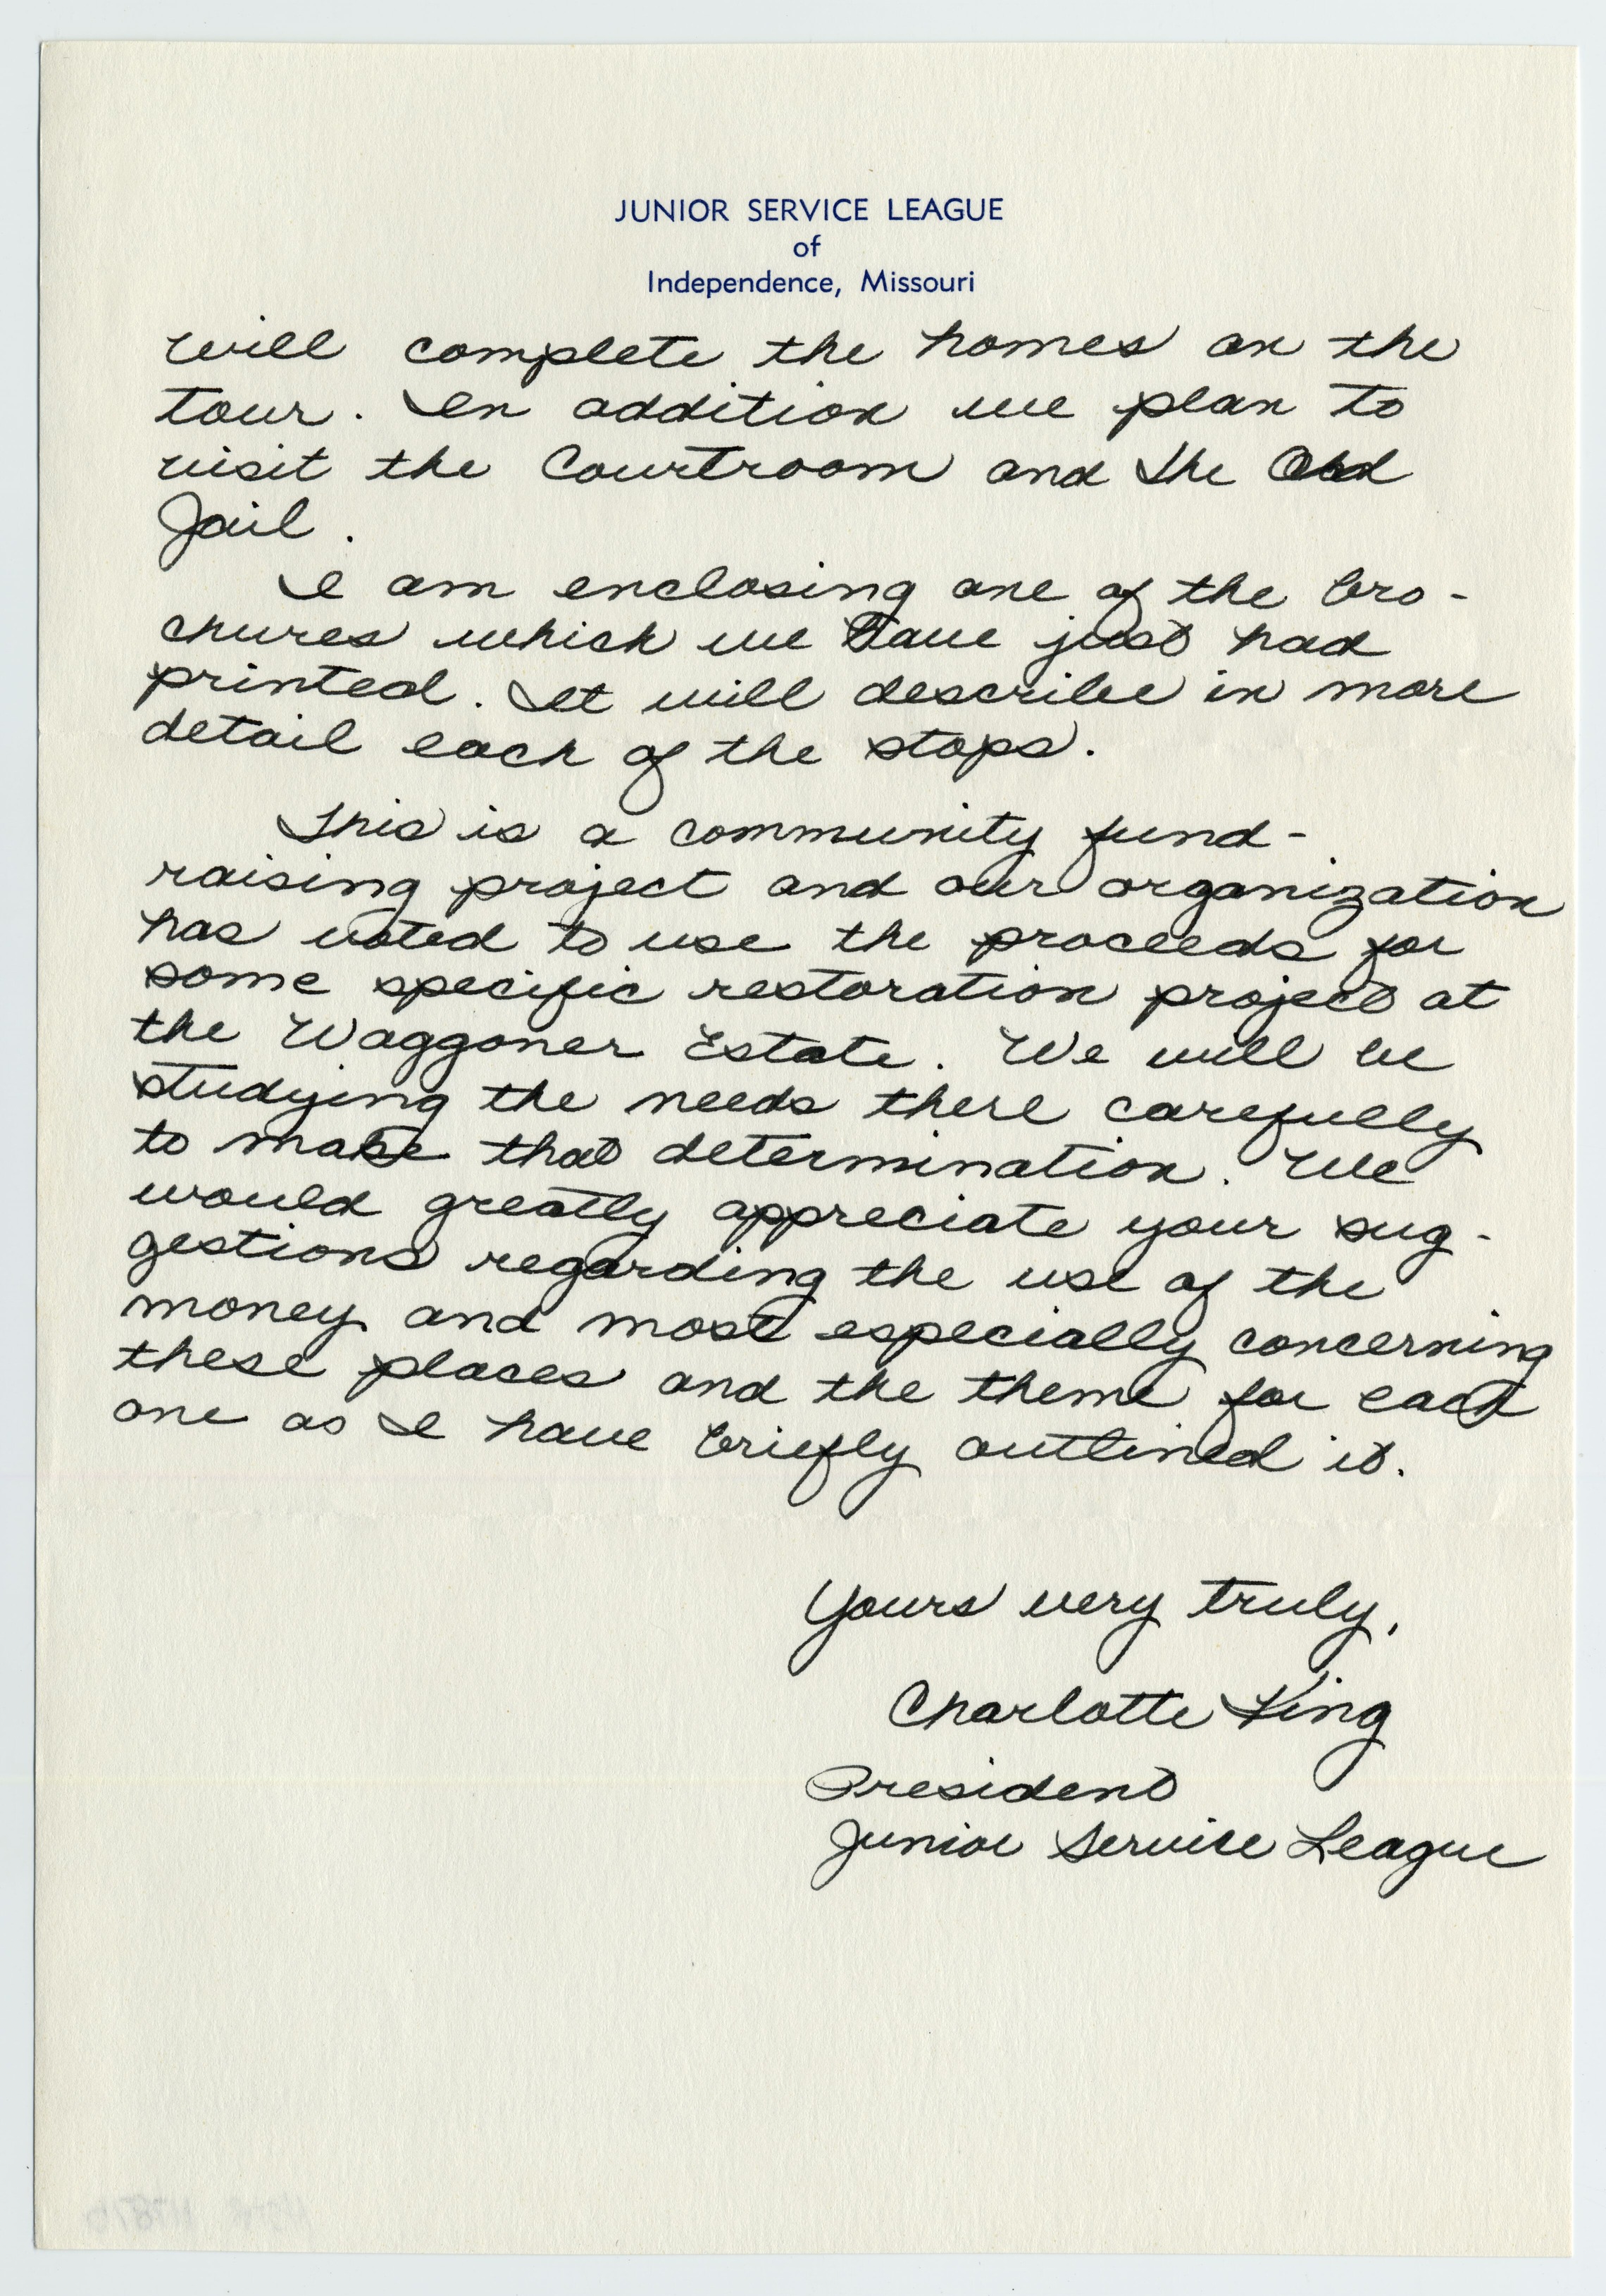 JUNIOR SERVICE LEAGUE
of
Independence, Missouri
will complete the homes on the
tour. In addition we plan to
visit the Courtroom and the Old
Jail.
I am enclosing one of the bro-
chures which we have just had
printed. It will describe in more
detail each of the stops.
This is a community fund-
raising project and our organization
has voted to use the proceeds for
some specific restoration project at
the Waggoner Estate. We will be
studying the needs there carefully
to make that determination. We
would greatly appreciate your sug-
gestions regarding the use of the
money and most especially concerning
these places and the theme for each
one as I have briefly outlined it.
Yours very truly,
Charlotte King
President
Junior Service League